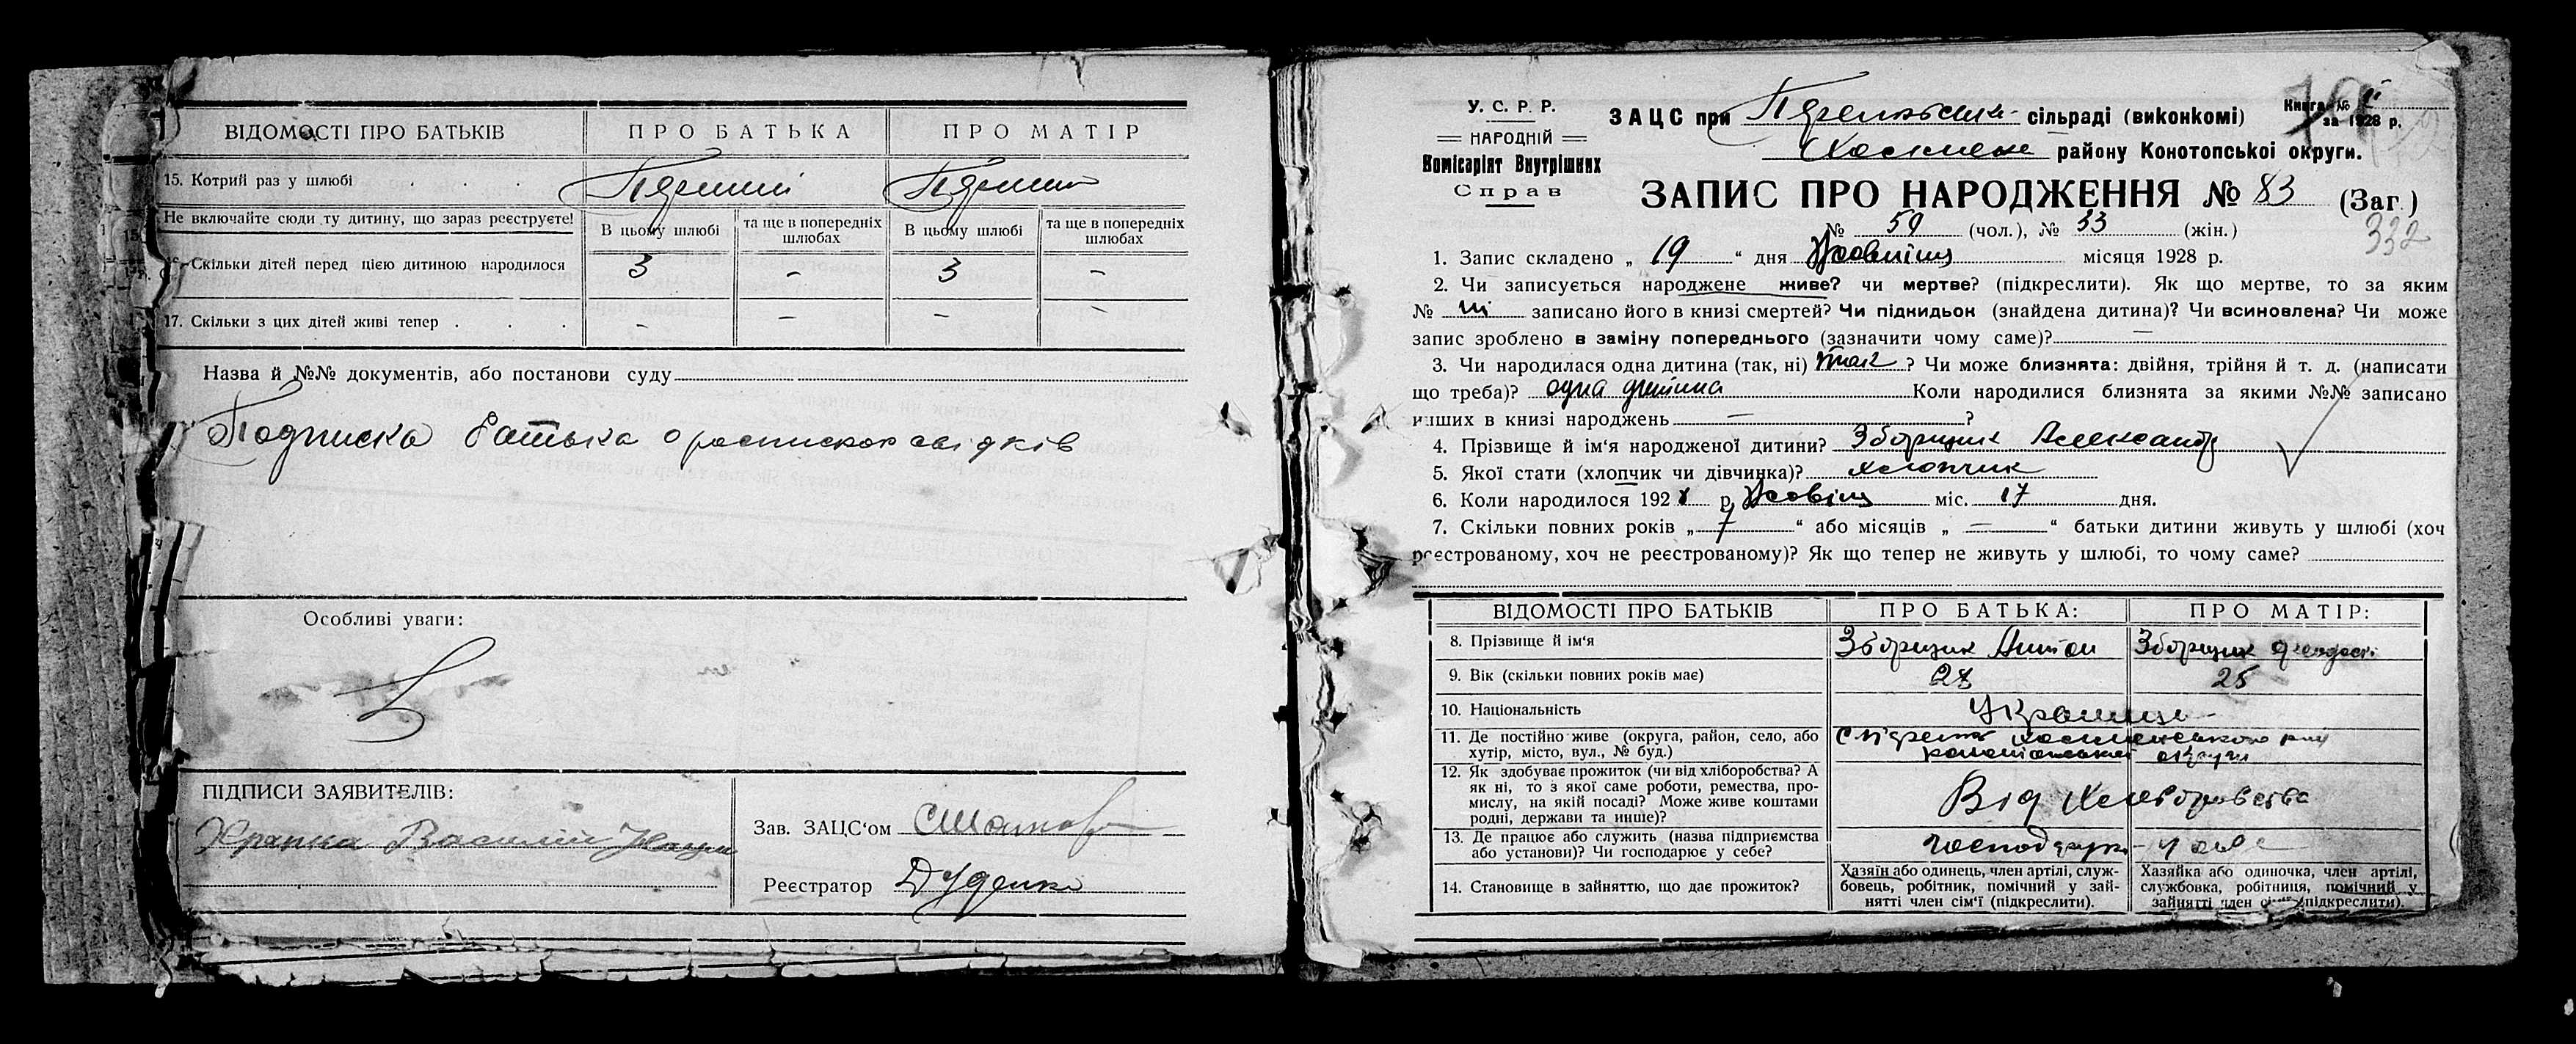 ВІДОМОСТІ ПРО БАТЬКІВ
ПРО БАТЬКА
ПРО МАТІР
15. Котрий раз у шлюбі . . .
Не включайте сюди ту дитину, що зараз реєструєте!
В цьому шлюбі
та ще в попередніх шлюбах
В цьому шлюбі
та ще в попередніх шлюбах
Скільки дітей перед цією дитиною народилося
3 - 3 -
17. Скільки з цих дітей живі тепер . . .
- - - -
Назва й №№ документів, або постанови суду
Подписка батька
Особливі уваги:
ПІДПИСИ ЗАЯВИТЕЛІВ:
Василій
Зав. ЗАЦС'ом
Реєстратор Дуденко
У. С. Р. Р.
НАРОДНІЙ
Комісаріят Внутрішних
Справ
ЗАЦС при сільраді (виконкомі)
району Конотопської округи.
Книга №
за 1928 р.
ЗАПИС ПРО НАРОДЖЕННЯ № 83 (Заг.)
№ 50 (чол.), № 33 (жін.)
332
1. Запис складено „ 19 " дня Жовтня місяця 1928 р.
2. Чи записується народжене живе? чи мертве? (підкреслити). Як що мертве, то за яким
№ ні записано його в книзі смертей? Чи підкидьок (знайдена дитина)? Чи всиновлена? Чи може
запис зроблено в заміну попереднього (зазначити чому саме)? —
3. Чи народилася одна дитина (так, ні) так ? Чи може близнята: двійня, трійня й т. д. (написати
що треба)? одна дитина Коли народилися близнята за якими №№ записано
инших в книзі народжень — ?
4. Прізвище й ім'я народженої дитини? Зборщик Александр
5. Якої стати (хлопчик чи дівчинка)? хлопчик
6. Коли народилося 1928 р. міс. 17 дня.
7. Скільки повних років „ 7 " або місяців „ — " батьки дитини живуть у шлюбі (хоч
реєстрованому, хоч не реєстрованому)? Як що тепер не живуть у шлюбі, то чому саме?
ВІДОМОСТІ ПРО БАТЬКІВ
ПРО БАТЬКА:
ПРО МАТІР:
8. Прізвище й ім'я
Зборщик Антон
Зборщик
9. Вік (скільки повних років має)
28
25
10. Національність
11. Де постійно живе (округа, район, село, або
хутір, місто, вул., № буд.)
12. Як здобуває прожиток (чи від хліборобства? А
як ні, то з якої саме роботи, ремества, про-
мислу, на якій посаді? Може живе коштами
родні, держави та инше)?
Від Хліборобства
13. Де працює або служить (назва підприємства
або установи)? Чи господарює у себе?
14. Становище в зайняттю, що дає прожиток?
Хазяїн або одинець, член артілі, служ-
бовець, робітник, помічний у зай-
нятті член сім'ї (підкреслити).
Хазяйка або одиночка, член артілі,
службовка, робітниця, помічний у
зайнятті член сім'ї (підкреслити).